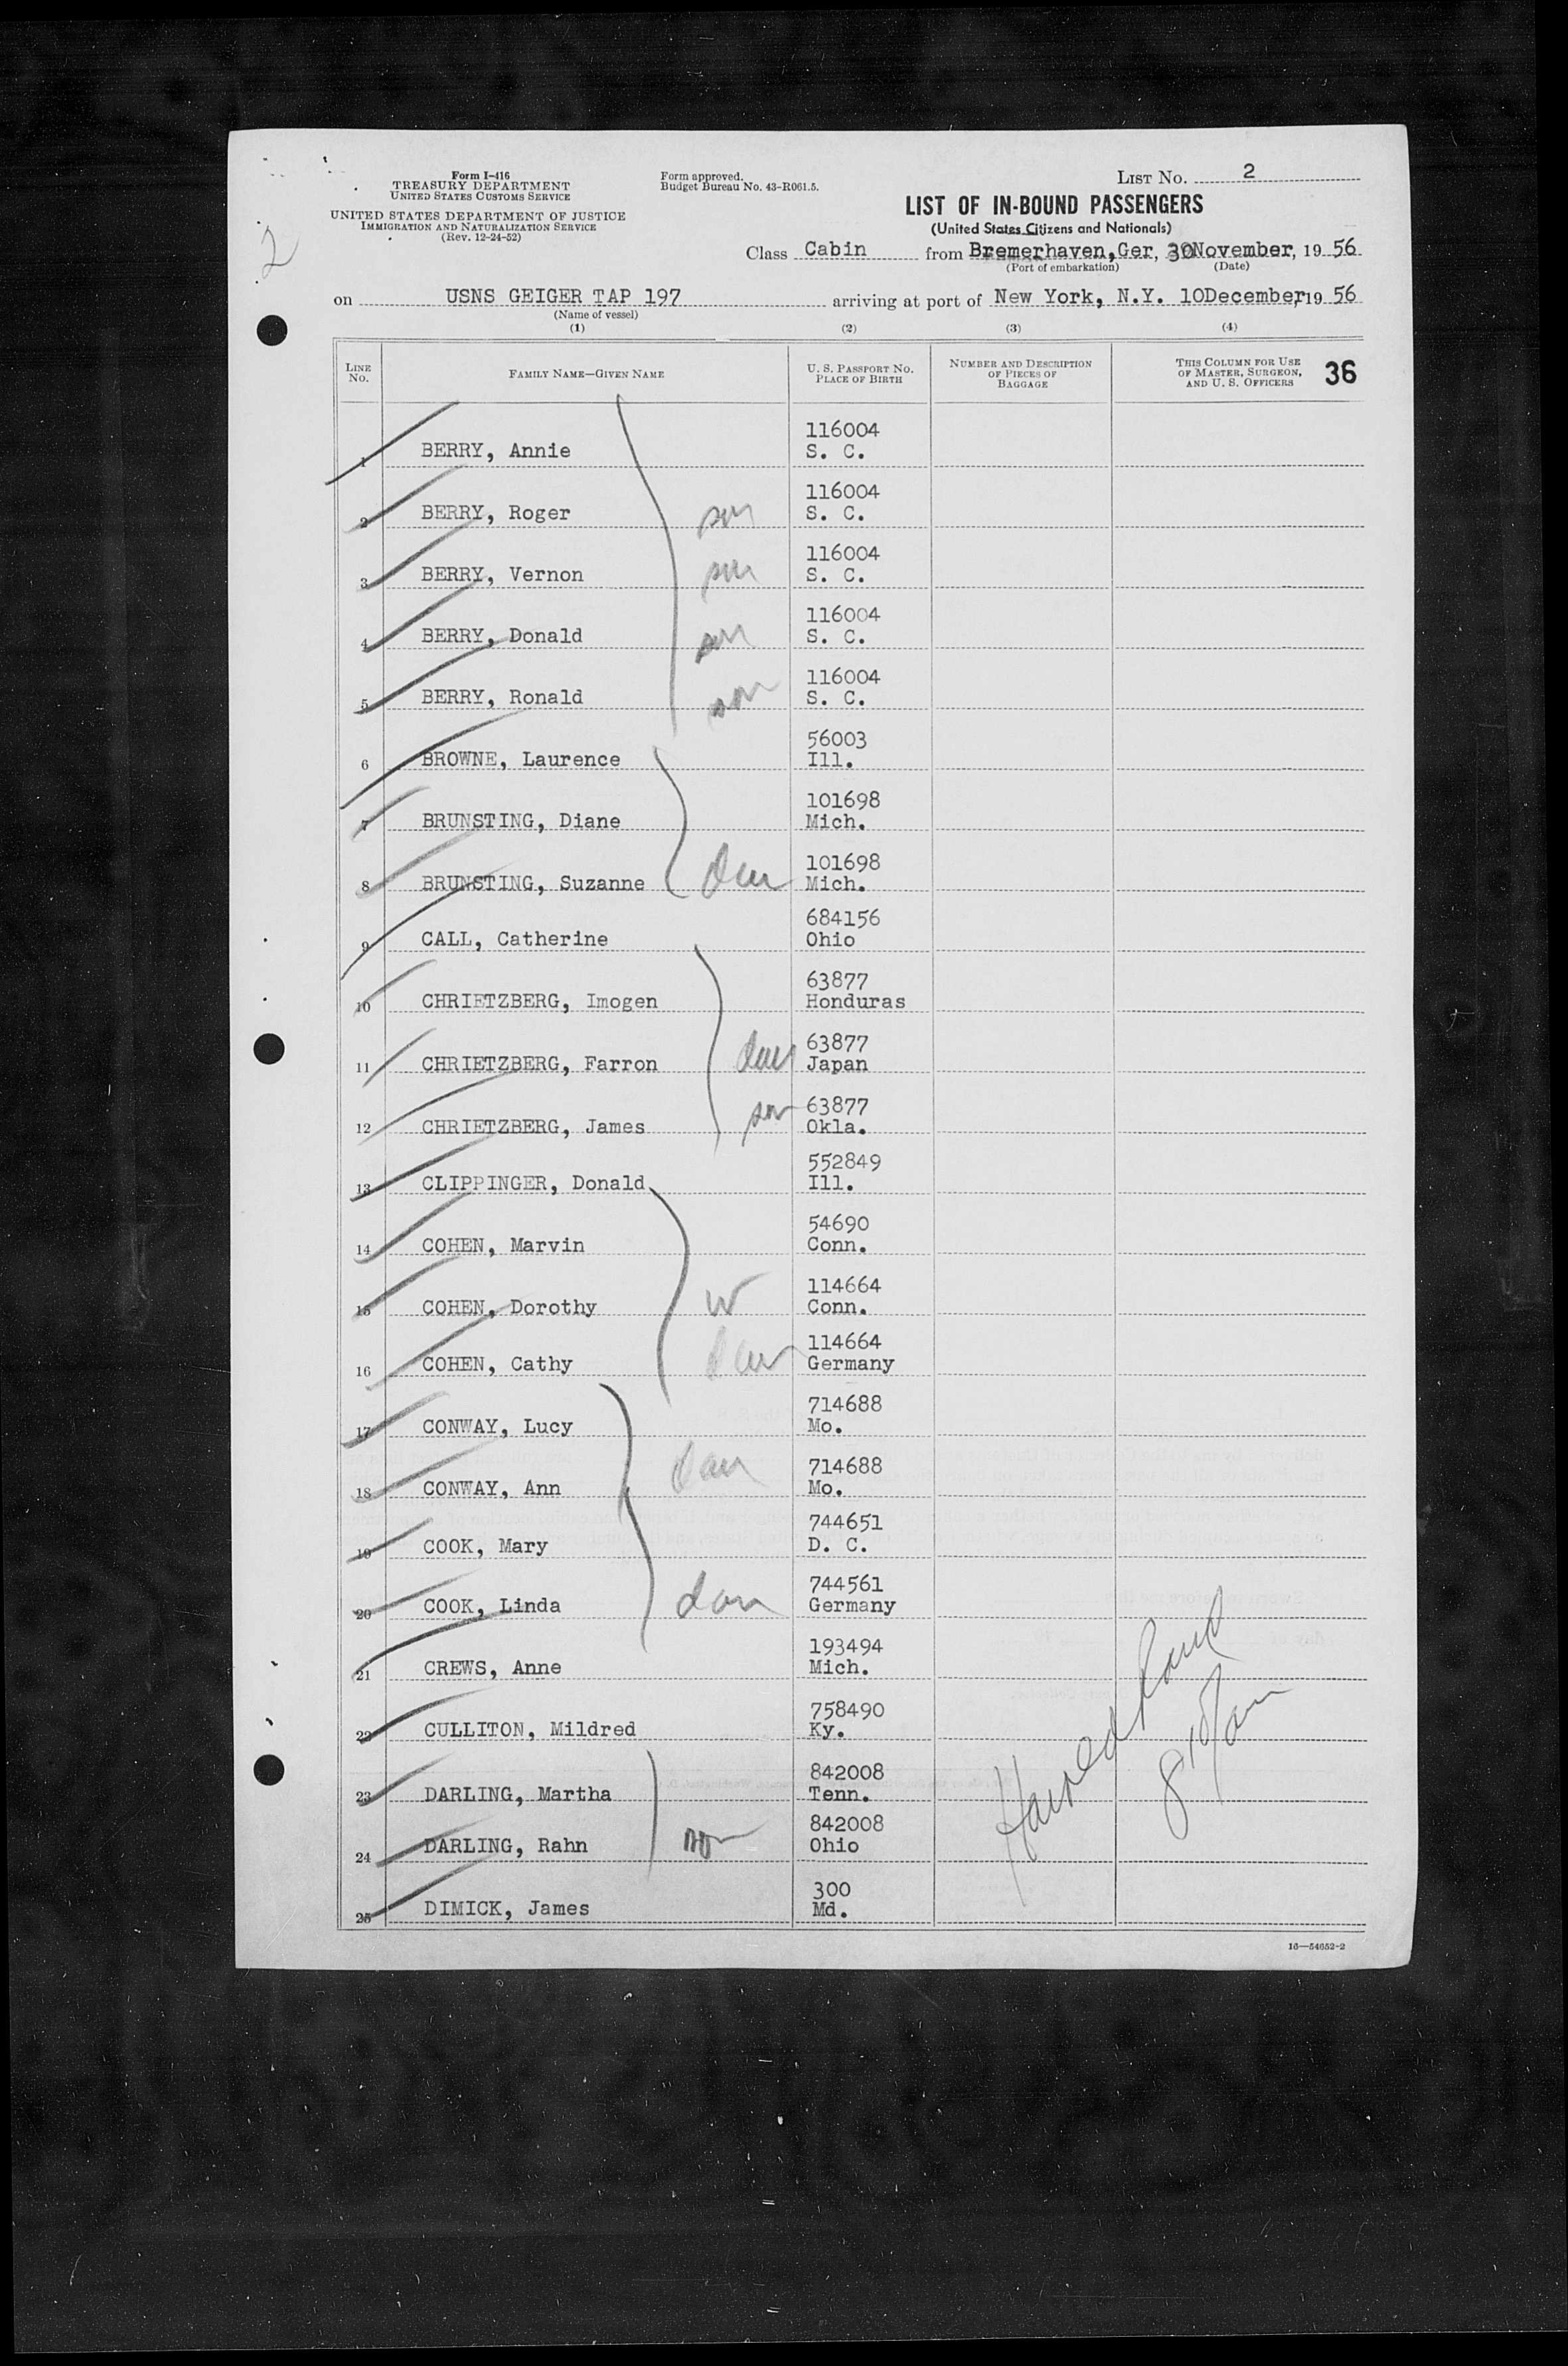 Form I-416
TREASURY DEPARTMENT
UNITED STATES CUSTOMS SERVICE
UNITED STATES DEPARTMENT OF JUSTICE
IMMIGRATION AND NATURALIZATION SERVICE
(Rev. 12-24-52)
Form approved.
Budget Bureau No. 43-R061.5.
LIST NO. 2
LIST OF IN-BOUND PASSENGERS
(United States Citizens and Nationals)
2
Class Cabin from Bremerhaven, Ger, 30 November, 19 56
(Port of embarkation) (Date)
on USNS GEIGER TAP 197 arriving at port of New York, N.Y. 10December, 19 56
(Name of vessel)
(1) (2) (3) (4)
LINE NO. FAMILY NAME—GIVEN NAME U. S. PASSPORT NO. PLACE OF BIRTH NUMBER AND DESCRIPTION OF PIECES OF BAGGAGE THIS COLUMN FOR USE OF MASTER, SURGEON, AND U. S. OFFICERS 36
116004
1 BERRY, Annie S. C.
116004
2 BERRY, Roger son S. C.
116004
3 BERRY, Vernon son S. C.
116004
4 BERRY, Donald son S. C.
116004
5 BERRY, Ronald son S. C.
56003
6 BROWNE, Laurence Ill.
101698
7 BRUNSTING, Diane Mich.
101698
8 BRUNSTING, Suzanne dau Mich.
684156
9 CALL, Catherine Ohio
63877
10 CHRIETZBERG, Imogen Honduras
63877
11 CHRIETZBERG, Farron dau Japan
63877
12 CHRIETZBERG, James son Okla.
552849
13 CLIPPINGER, Donald Ill.
54690
14 COHEN, Marvin Conn.
114664
15 COHEN, Dorothy W Conn.
114664
16 COHEN, Cathy dau Germany
714688
17 CONWAY, Lucy Mo.
714688
18 CONWAY, Ann dau Mo.
744651
19 COOK, Mary D. C.
744561
20 COOK, Linda dau Germany
193494
21 CREWS, Anne Mich.
758490
22 CULLITON, Mildred Ky.
842008
23 DARLING, Martha Tenn.
842008
24 DARLING, Rahn son Ohio
300
25 DIMICK, James Md.
Harold
16—54652-2